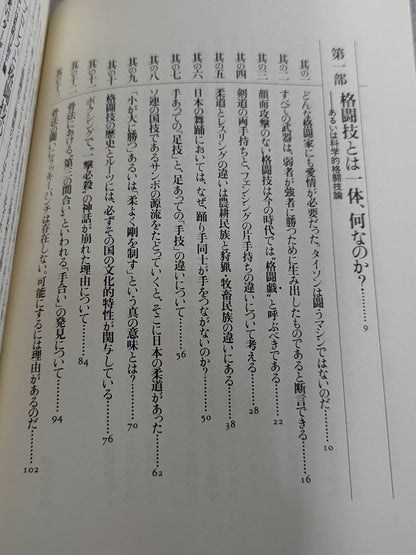 第一部 格闘技とは一体、何なのか?……… 9
――あるいは科学的格闘技論
其の一 どんな格闘家にも愛情が必要だった。タイソンは闘うマシンではないのだ……… 10
其の二 すべての武器は、弱者が強者に勝つために生み出したものであると断言できる……… 16
其の三 顔面攻撃のない格闘技は今の時代では“格闘戯”と呼ぶべきである……… 22
其の四 剣道の両手持ちと、フェンシングの片手持ちの違いについて考える……… 28
其の五 柔道とレスリングの違いは農耕民族と狩猟、牧畜民族の違いにある……… 38
其の六 日本の舞踊においては、なぜ、踊り手同士が手をつながないのか?……… 50
其の七 手あっての「足技」と、足あっての「手技」の違いについて……… 56
其の八 ソ連の国技であるサンボの源流をたどっていくと、そこに日本の柔道があった……… 62
其の九 「小が大に勝つ」あるいは「柔よく剛を制す」という真の意味とは?……… 70
其の十 格闘技の歴史とルーツには、必ずその国の文化的特性が関与している……… 76
其の十一 ボクシングで、“一撃必殺”の神話が崩れた理由について……… 84
其の十二 骨法における「第三の間合い」といわれる、「手合い」の発見について……… 94
其の十三 骨法に聞いたラッキーパンチは存在しない。“可能”にするには理由があるのだ……… 102